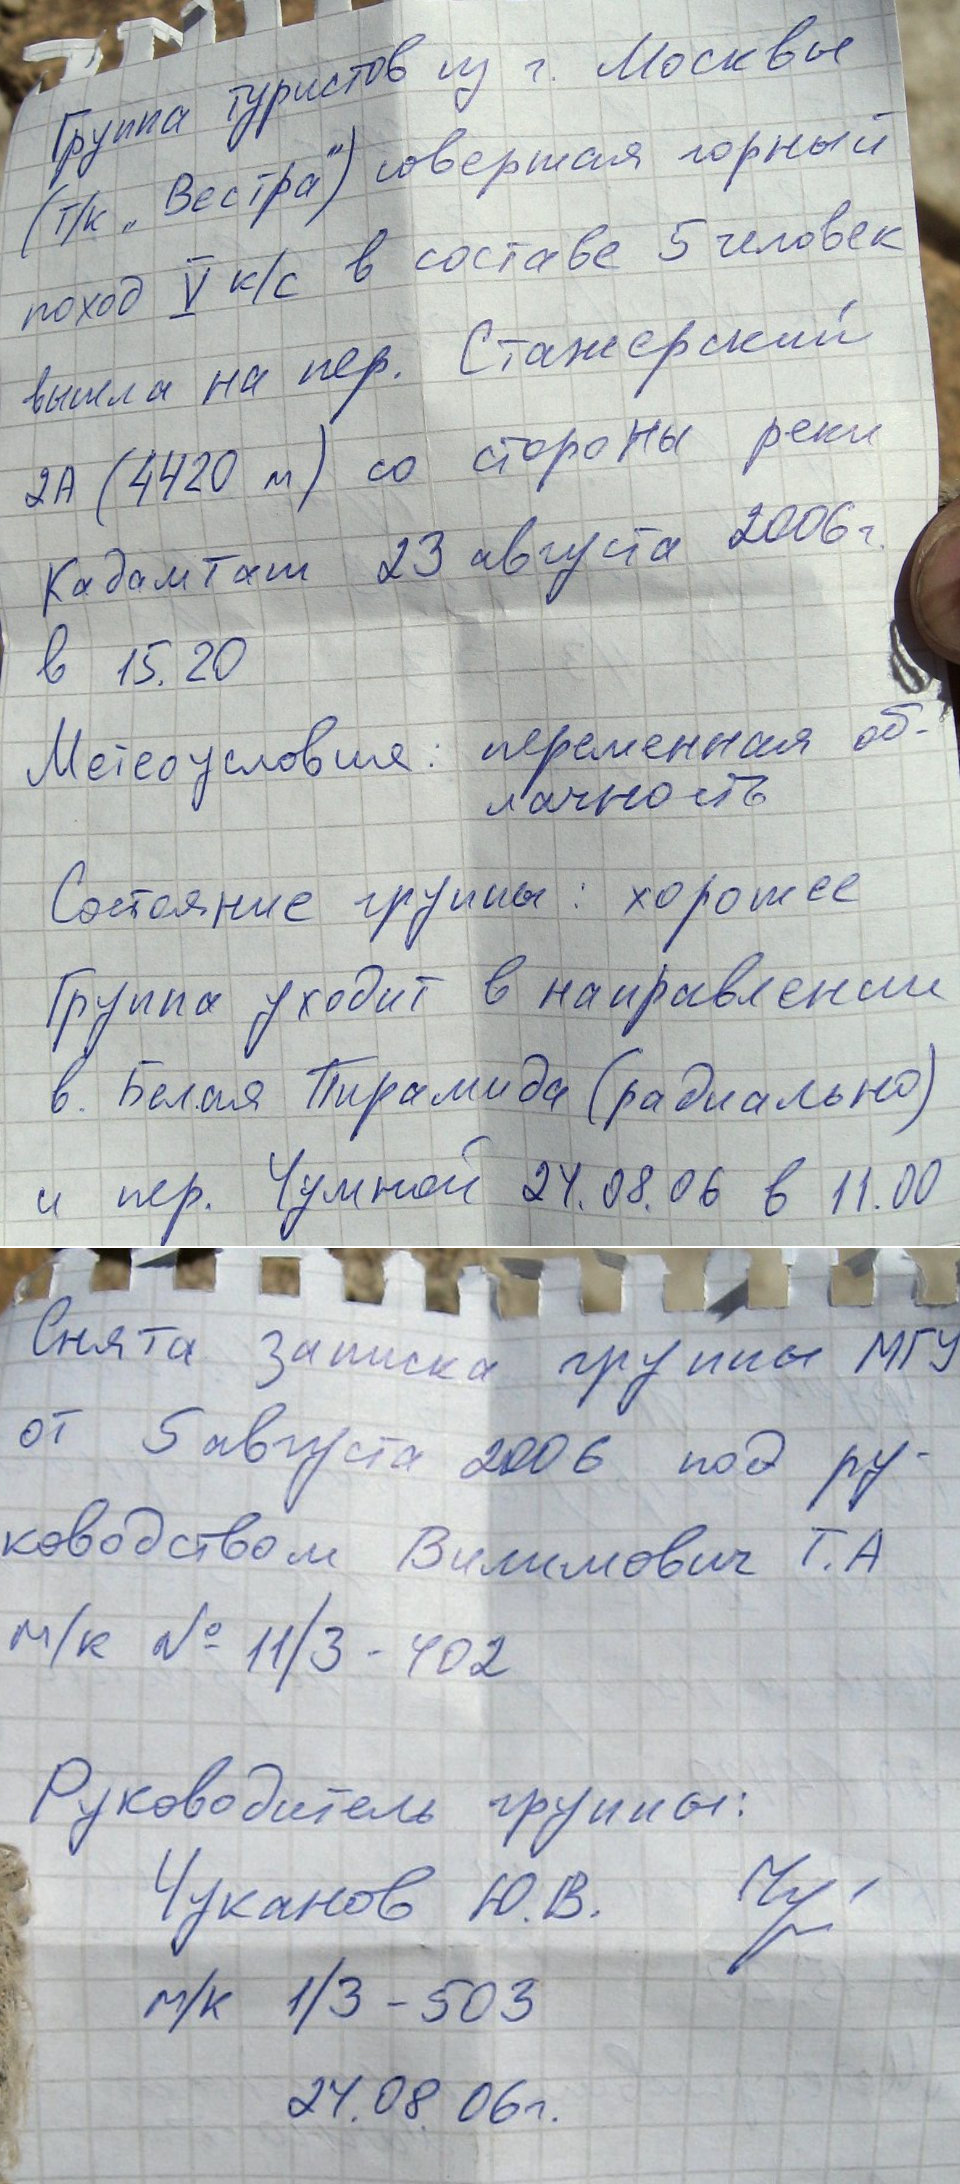 Группа туристов из г. Москвы
(т/к „Вестра") совершая горный
поход V к/с в составе 5 человек
вышла на пер. Стажерский
2А (4420 м) со стороны реки
Кадамташ 23 августа 2006г.
в 15.20
Метеоусловия: переменная об-
лачность
Состояние группы: хорошее
Группа уходит в направлении
в. Белая Пирамида (радиально)
и пер. Чумной 24.08.06 в 11.00
Снята записка группы МГУ
от 5 августа 2006 под ру-
ководством Вилимович Т.А
м/к № 11/3-402
Руководитель группы:
Чуканов Ю.В.
м/к 1/3-503
24.08.06г.